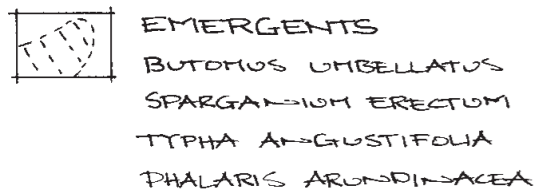 EMERGENTS
BUTOMUS UMBELLATUS
SPARGANIUM ERECTUM
TYPHA ANGUSTIFOLIA
PHALARIS ARUNDINACEA